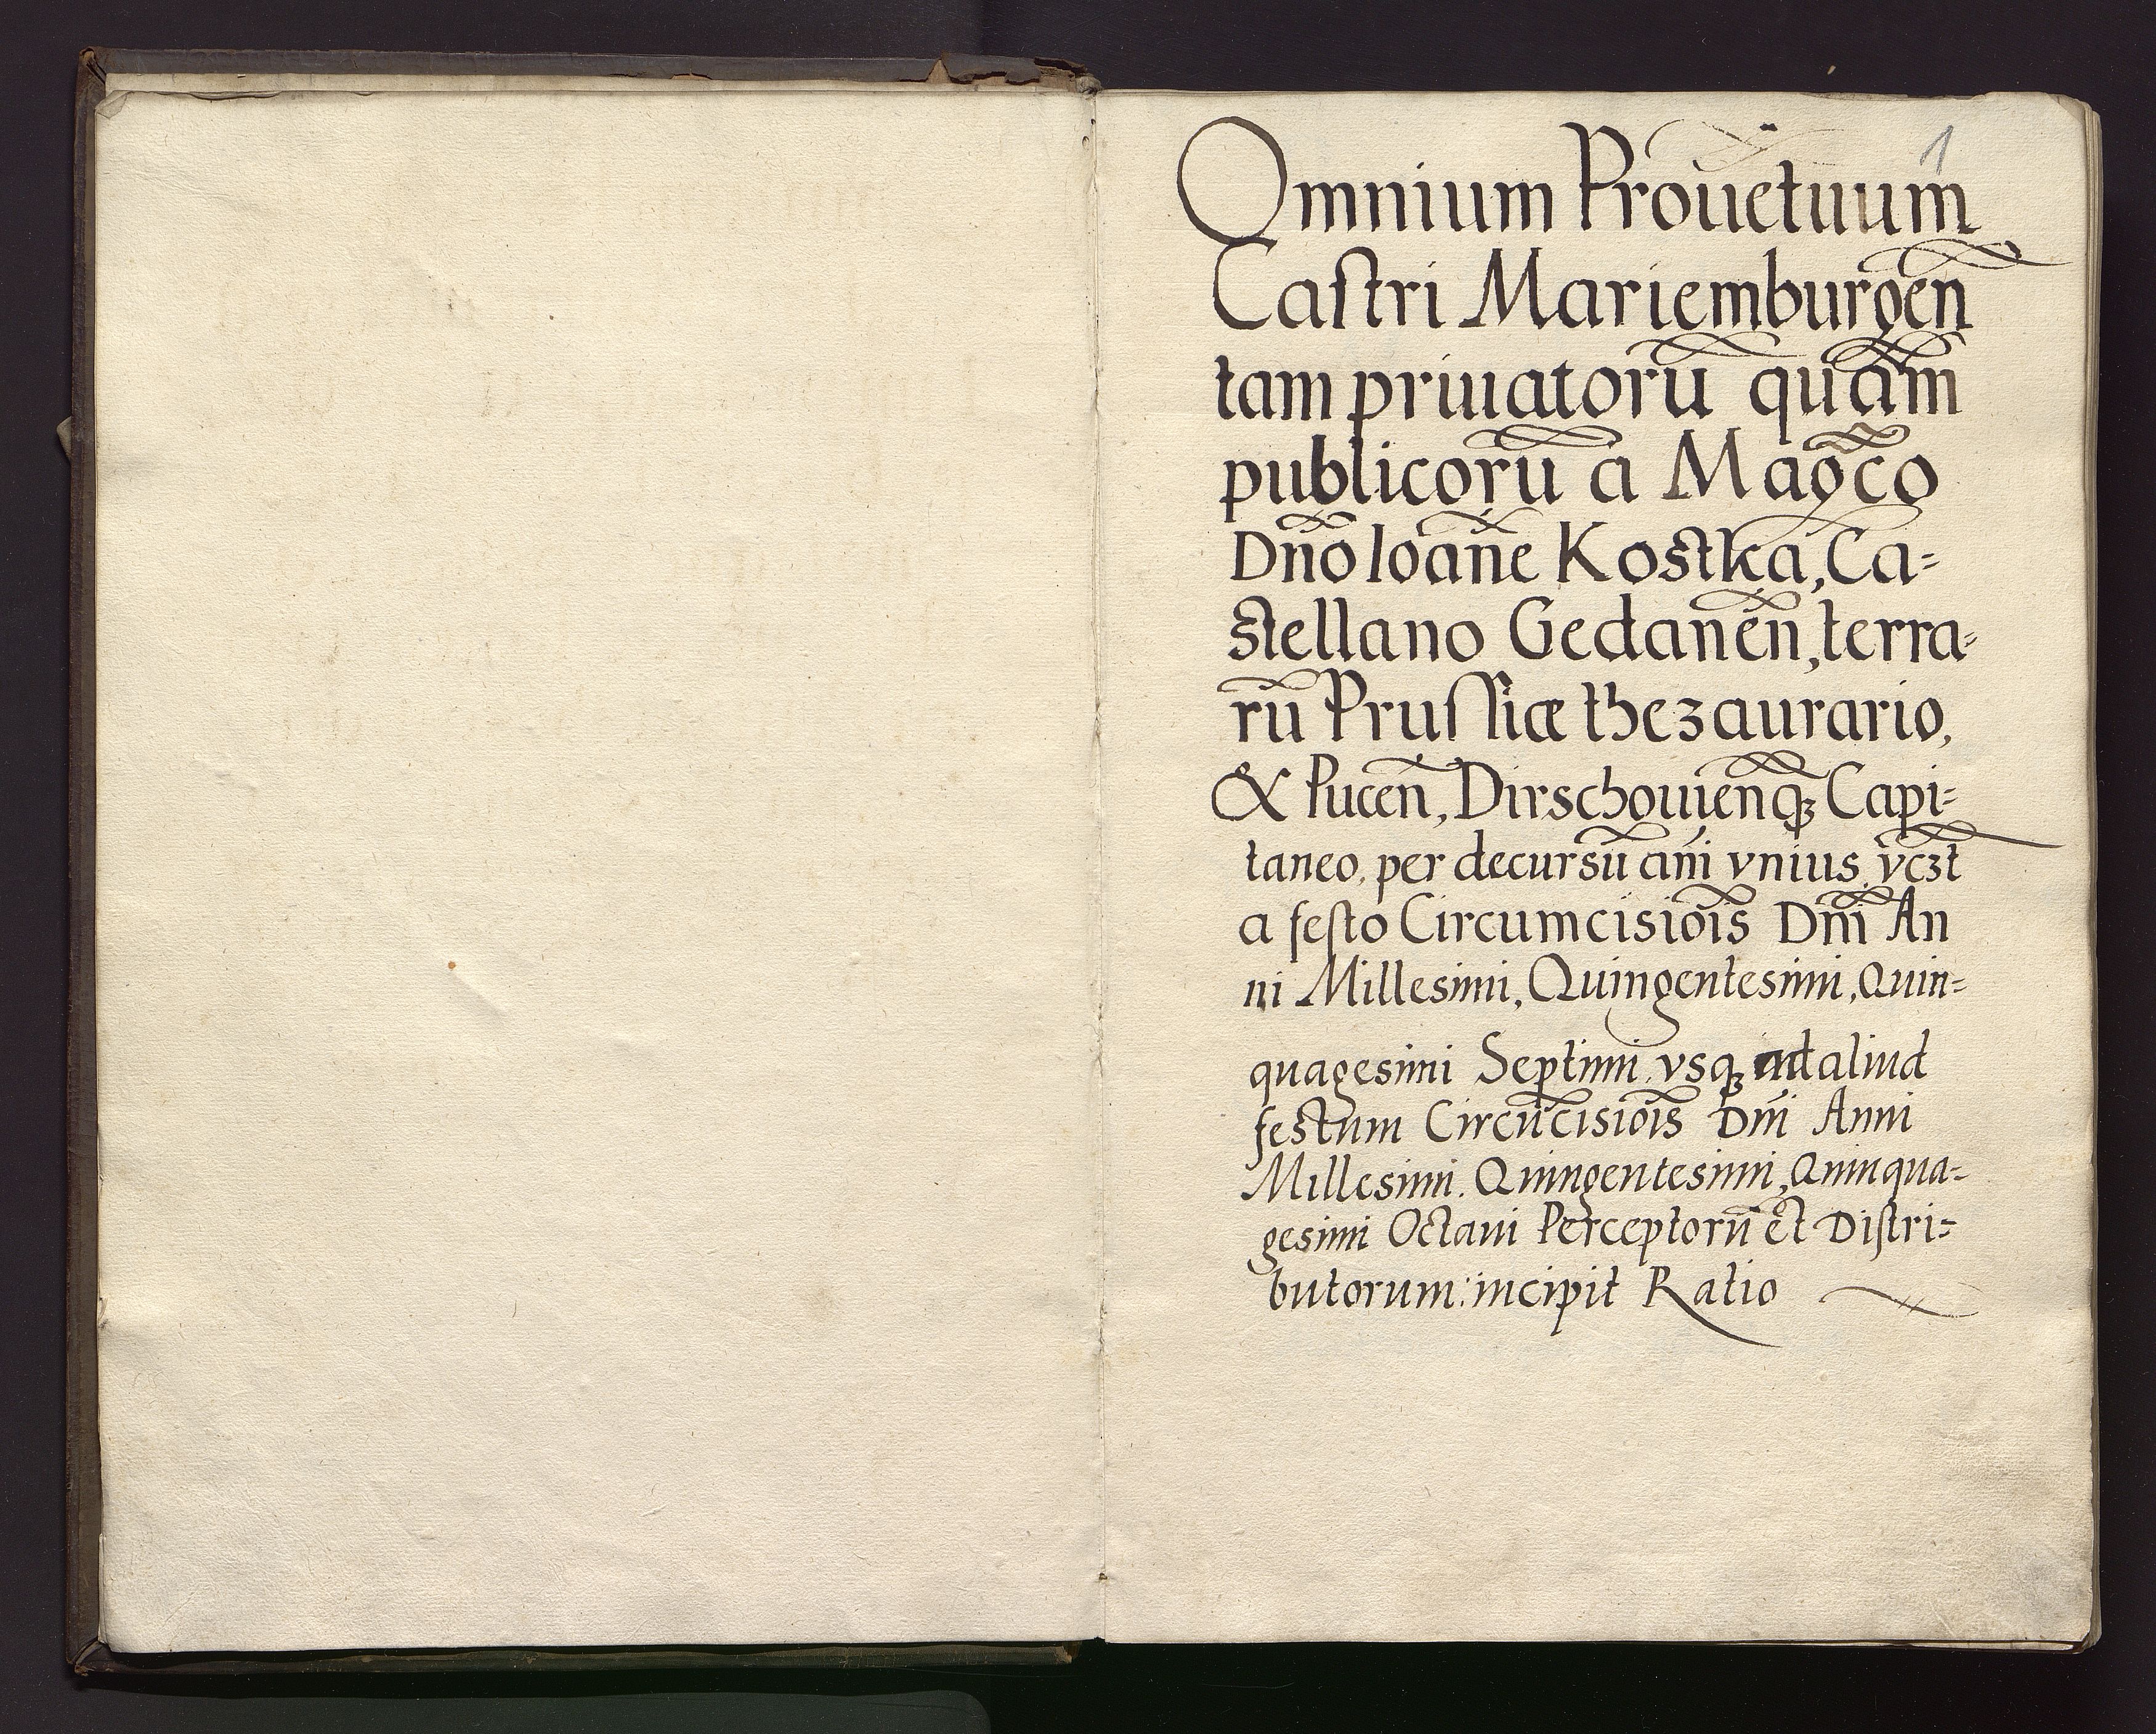 1
Omnium Prouētuum
Caſtri Mariemburgeñ
tam priuatorũ quam
publicorũ a Magc̃o
Dño Ioañe Kostka, Ca=
stellano Gedaneñ, terra=
rũ Pruſſiæ thezaurario,
& Puceñ, Dirschouieñq́ꝫ Capi=
taneo, per decursũ añi vnius, vc̃ꝫt
a feſto Circumcisiõis Dñi An
ni Millesimi, Quingentesimi, Quin=
quagesimi Septimi, vsqꝫ ad aliud
festum Circũcisiõis Dñi Anni
Millesimi. Quingentesimi, Quinqua=
gesimi Octaui Perceptorũ et Diſtri=
butorum: incipit Ratio